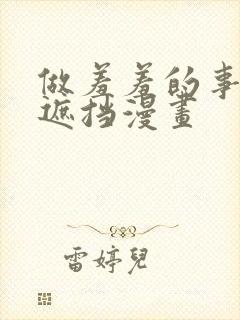 做羞羞的事
遮挡漫畫
雷婷兒